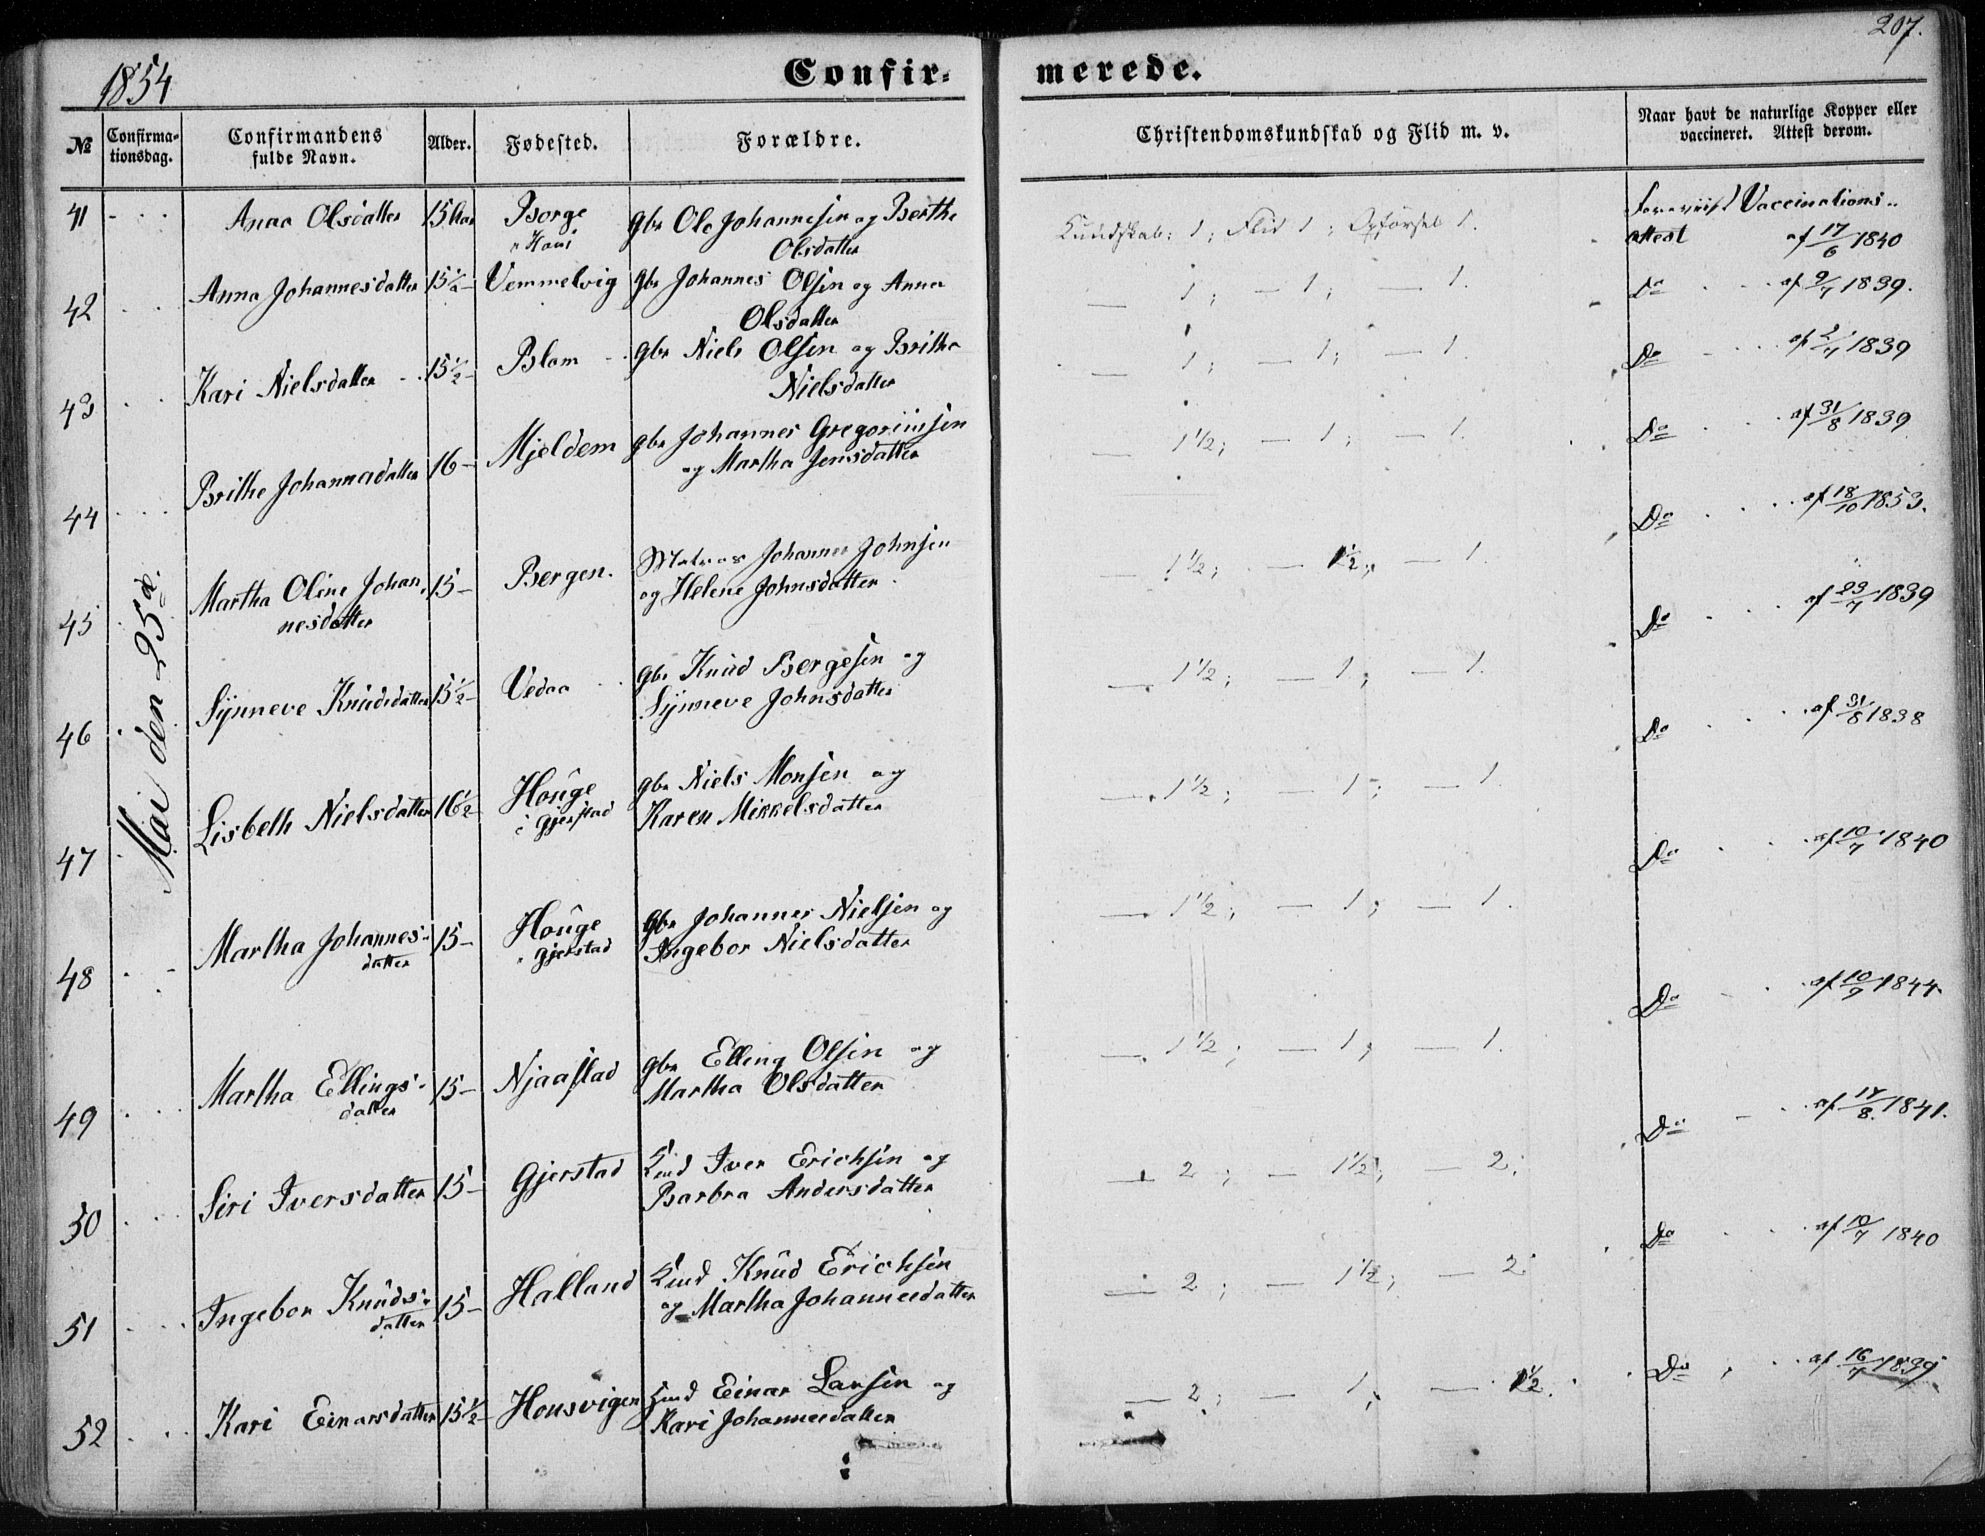 207.
1854
Confir-
merede.
№
Confirma-
tionsdag.
Confirmandens
fulde Navn.
Alder.
Fødested.
Forældre.
Christendomskundskab og Flid m. v.
Naar havt de naturlige Kopper eller
vaccineret. Attest derom.
Mai den 25de
41 Anna Olsdatter 15 Aar Borge gbr Ole Johannesen og Berthe
Olsdatter
Kundskab: 1; Flid 1; Opførsel 1.
Foreviist Vaccinations-
attest af 17/6 1840
42 Anna Johannesdatter 15½ Vemmelvig gbr Johannes Olsen og Anna
Olsdatter
— 1; — 1; — 1.
Do af 9/7 1839.
43 Kari Nielsdatter 15½ Blom gbr Niels Olsen og Brithe
Nielsdatter
— 1; — 1; — 1.
Do af 2/7 1839
44 Brithe Johannesdatter 16 — Mjeldem gbr Johannes Gregoriusen
og Martha Jensdatter
— 1½; — 1; — 1.
Do af 31/8 1839
45 Martha Oline Johan- 15 — Bergen. Matros Johannes Johnsen
nesdatter og Helene Johnsdatter
— 1½; — 1½; — 1
Do af 18/10 1853.
46 Synneve Knudsdatter 15½ — Vedaa gbr Knud Børgesen og
Synneve Johnsdatter
— 1½; — 1; — 1.
Do af 23/7 1839
47 Lisbeth Nielsdatter 16½ Houge gbr Niels Monsen og
i Gjerstad Karen Mikkelsdatter
— 1½; — 1; — 1
Do af 31/8 1838
48 Martha Johannes- 15 — Houge gbr Johannes Nielsen og
datter i Gjerstad Ingebor Nielsdatter
— 1½; — 1; — 1.
Do af 10/7 1840
49 Martha Ellings- 15 — Njaastad gbr Elling Olsen og
datter Martha Olsdatter
— 1½; — 1; — 1.
Do af 10/9 1844.
50 Siri Iversdatter 15 — Gjerstad Iver Erichsen og
Barbra Andersdatter
— 2; — 1½; — 2;
Do af 17/8 1841.
51 Ingebor Knuds- 15 — Halland Knud Erichsen
datter og Martha Johannesdatter
— 2; — 1½; — 2
Do af 10/7 1840
52 Kari Einarsdatter 15½ Housvigen Einar Larsen og
Kari Johannesdatter
— 2; — 1, — 1½.
Do af 16/7 1839